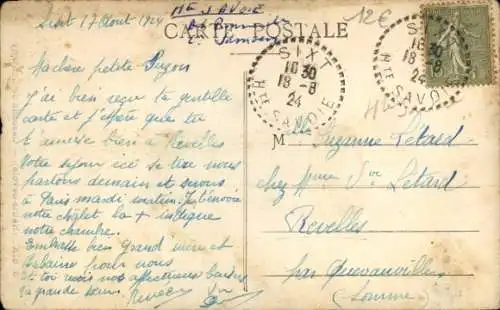 Sixt 17 Août 1924
Hte SAVOIE
CARTE POSTALE
12€
SIXT
18-8
24
Hte SAVOIE
SIXT
16 30
18-8
24
Hte SAVOIE
Ma chère petite Suzon
J'ai bien reçu ta gentille
carte et j'espère que tu
t'amuses bien à Revelles
Notre séjour ici se tire nous
partons demain et serons
à Paris mardi matin. Je t'envoie
notre châlet la + indique
notre chambre.
Embrasse bien Grand'mère et
pour nous
et toi reçois nos affectueux baisers
Ta grande sœur. Renée
Mlle Suzanne Létard
chez Mme Vve Létard
Revelles
par Quevauvillers
(Somme)